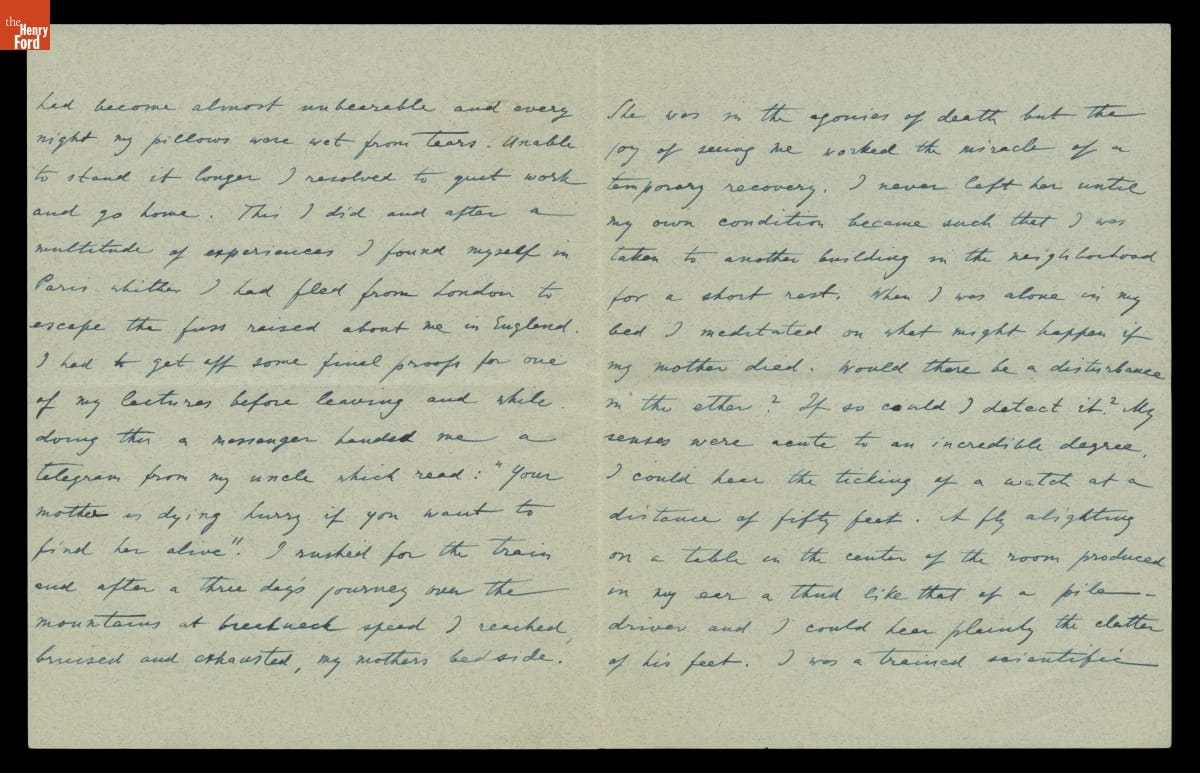 the
Henry
Ford
had become almost unbearable and every
night my pillows were wet from tears. Unable
to stand it longer I resolved to quit work
and go home. This I did and after a
multitude of experiences I found myself in
Paris whither I had fled from London to
escape the fuss raised about me in England.
I had to get off some final proofs for one
of my lectures before leaving and while
doing this a messenger handed me a
telegram from my uncle which read: "Your
mother is dying hurry if you want to
find her alive". I rushed for the train
and after a three day's journey over the
mountains at breakneck speed I reached,
bruised and exhausted, my mothers bedside.
She was in the agonies of death but the
joy of seeing me worked the miracle of a
temporary recovery. I never left her until
my own condition became such that I was
taken to another building in the neighborhood
for a short rest. When I was alone in my
bed I meditated on what might happen if
my mother died. Would there be a disturbance
in the ether? If so could I detect it? My
senses were acute to an incredible degree.
I could hear the ticking of a watch at a
distance of fifty feet. A fly alighting
on a table in the center of the room produced
in my ear a thud like that of a pile-
driver and I could hear plainly the clatter
of his feet. I was a trained scientific